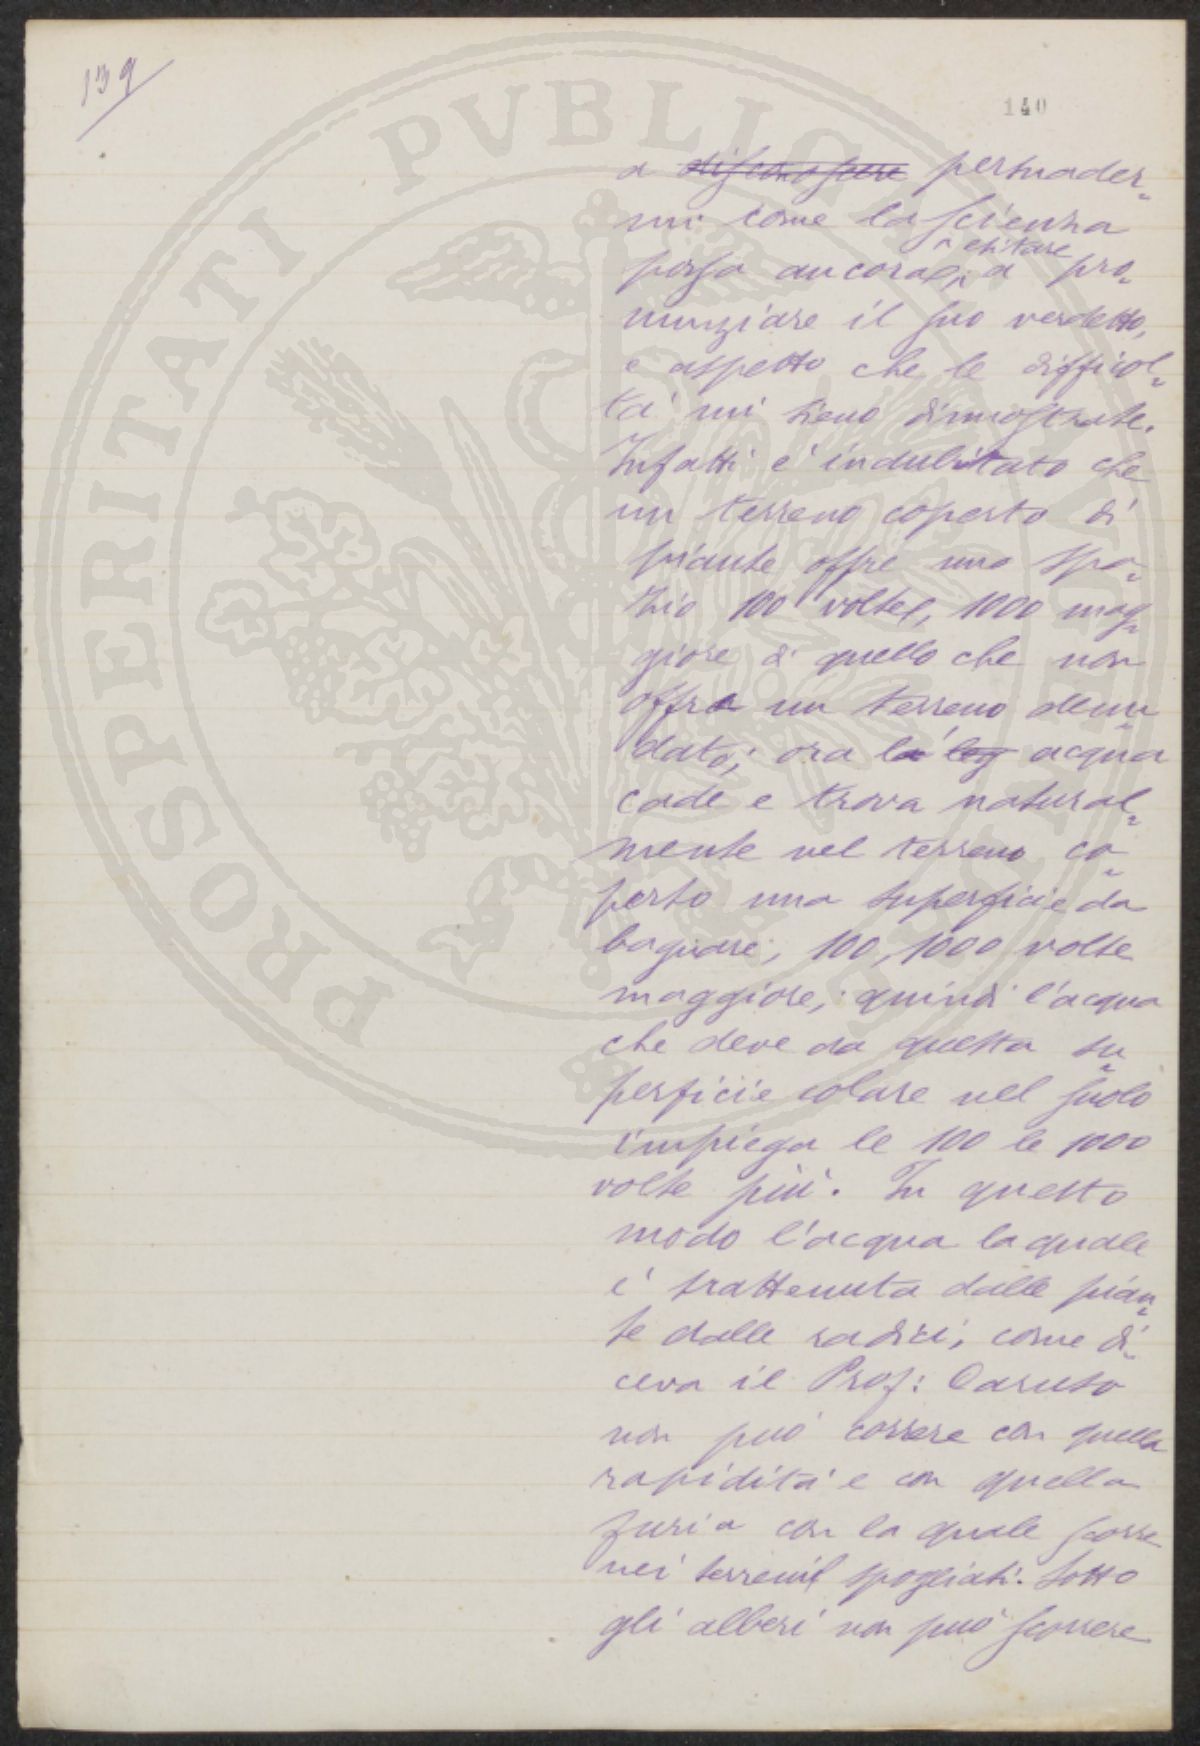 139
140
a ~~disconoscere~~ persuader-
mi come la scienza
possa ancora esitare a pro-
nunziare il suo verdetto,
e aspetto che le difficol-
tà mi sieno dimostrate.
Infatti è indubitato che
un terreno coperto di
piante offre uno spa-
zio 100 volte, 1000 mag-
giore di quello che non
offra un terreno denu-
dato; ora l'~~a leg~~ acqua
cade e trova natural-
mente nel terreno co-
perto una superficie da
bagnare, 100, 1000 volte
maggiore, quindi l'acqua
che deve da questa su-
perficie colare nel suolo
impiega le 100 le 1000
volte più. In questo
modo l'acqua la quale
è trattenuta dalle pian-
te dalle radici, come di-
ceva il Prof: Caruso
non può correre con quella
rapidità e con quella
furia con la quale scorre
nei terreni spogliati. Sotto
gli alberi non può scorrere
PROSPERITATI PVBLICAE